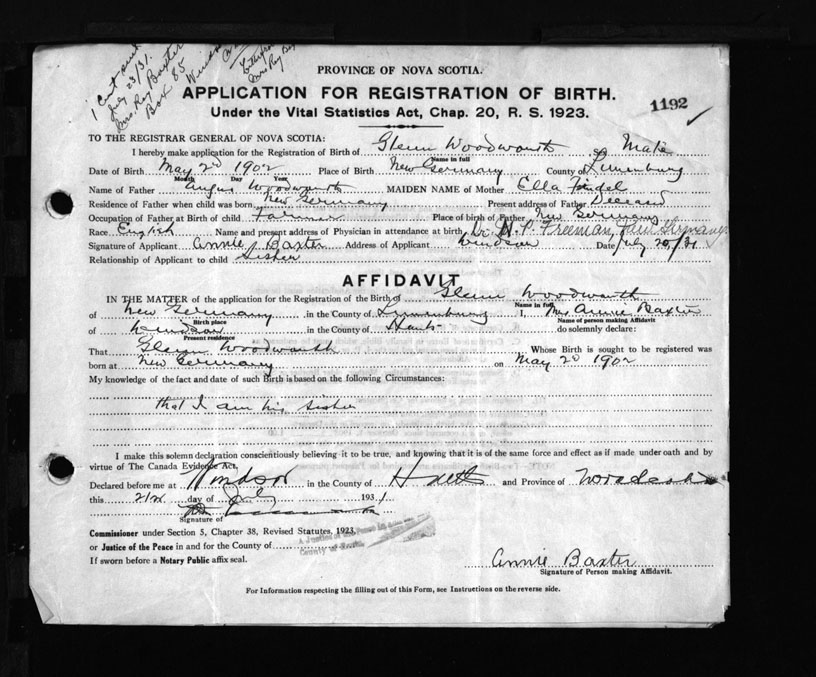 1 Cent
July 23/31.
Mrs. Ray Baxter
Box 85
Mrs Ray
PROVINCE OF NOVA SCOTIA.
APPLICATION FOR REGISTRATION OF BIRTH.
1192
Under the Vital Statistics Act, Chap. 20, R. S. 1923.
TO THE REGISTRAR GENERAL OF NOVA SCOTIA:
I hereby make application for the Registration of Birth of Glenn Woodworth Male
Name in full
Date of Birth May 2d 1902 Place of Birth New Germany County of Lunenburg
Month Day Year
Name of Father Angus Woodworth MAIDEN NAME of Mother Ella Feindel
Residence of Father when child was born New Germany Present address of Father Deceased
Occupation of Father at Birth of child Place of birth of Father New Germany
Race English Name and present address of Physician in attendance at birth Dr. Freeman
Signature of Applicant Annie Baxter Address of Applicant Windsor Date July 20/31
Relationship of Applicant to child Sister
AFFIDAVIT
IN THE MATTER of the application for the Registration of the Birth of Glenn Woodworth
Name in full
of New Germany in the County of Lunenburg I, Mrs Annie Baxter
Birth place Name of person making Affidavit
of Windsor in the County of Hants do solemnly declare:
Present residence
That Glenn Woodworth Whose Birth is sought to be registered was
born at New Germany on May 2d 1902
My knowledge of the fact and date of such Birth is based on the following Circumstances:
that I am his sister
I make this solemn declaration conscientiously believing it to be true, and knowing that it is of the same force and effect as if made under oath and by
virtue of The Canada Evidence Act.
Declared before me at Windsor in the County of Hants and Province of Nova Scotia
this 21st day of July 1931
Signature of
Commissioner under Section 5, Chapter 38, Revised Statutes, 1923,
or Justice of the Peace in and for the County of
If sworn before a Notary Public affix seal.
Annie Baxter
Signature of Person making Affidavit.
For Information respecting the filling out of this Form, see Instructions on the reverse side.